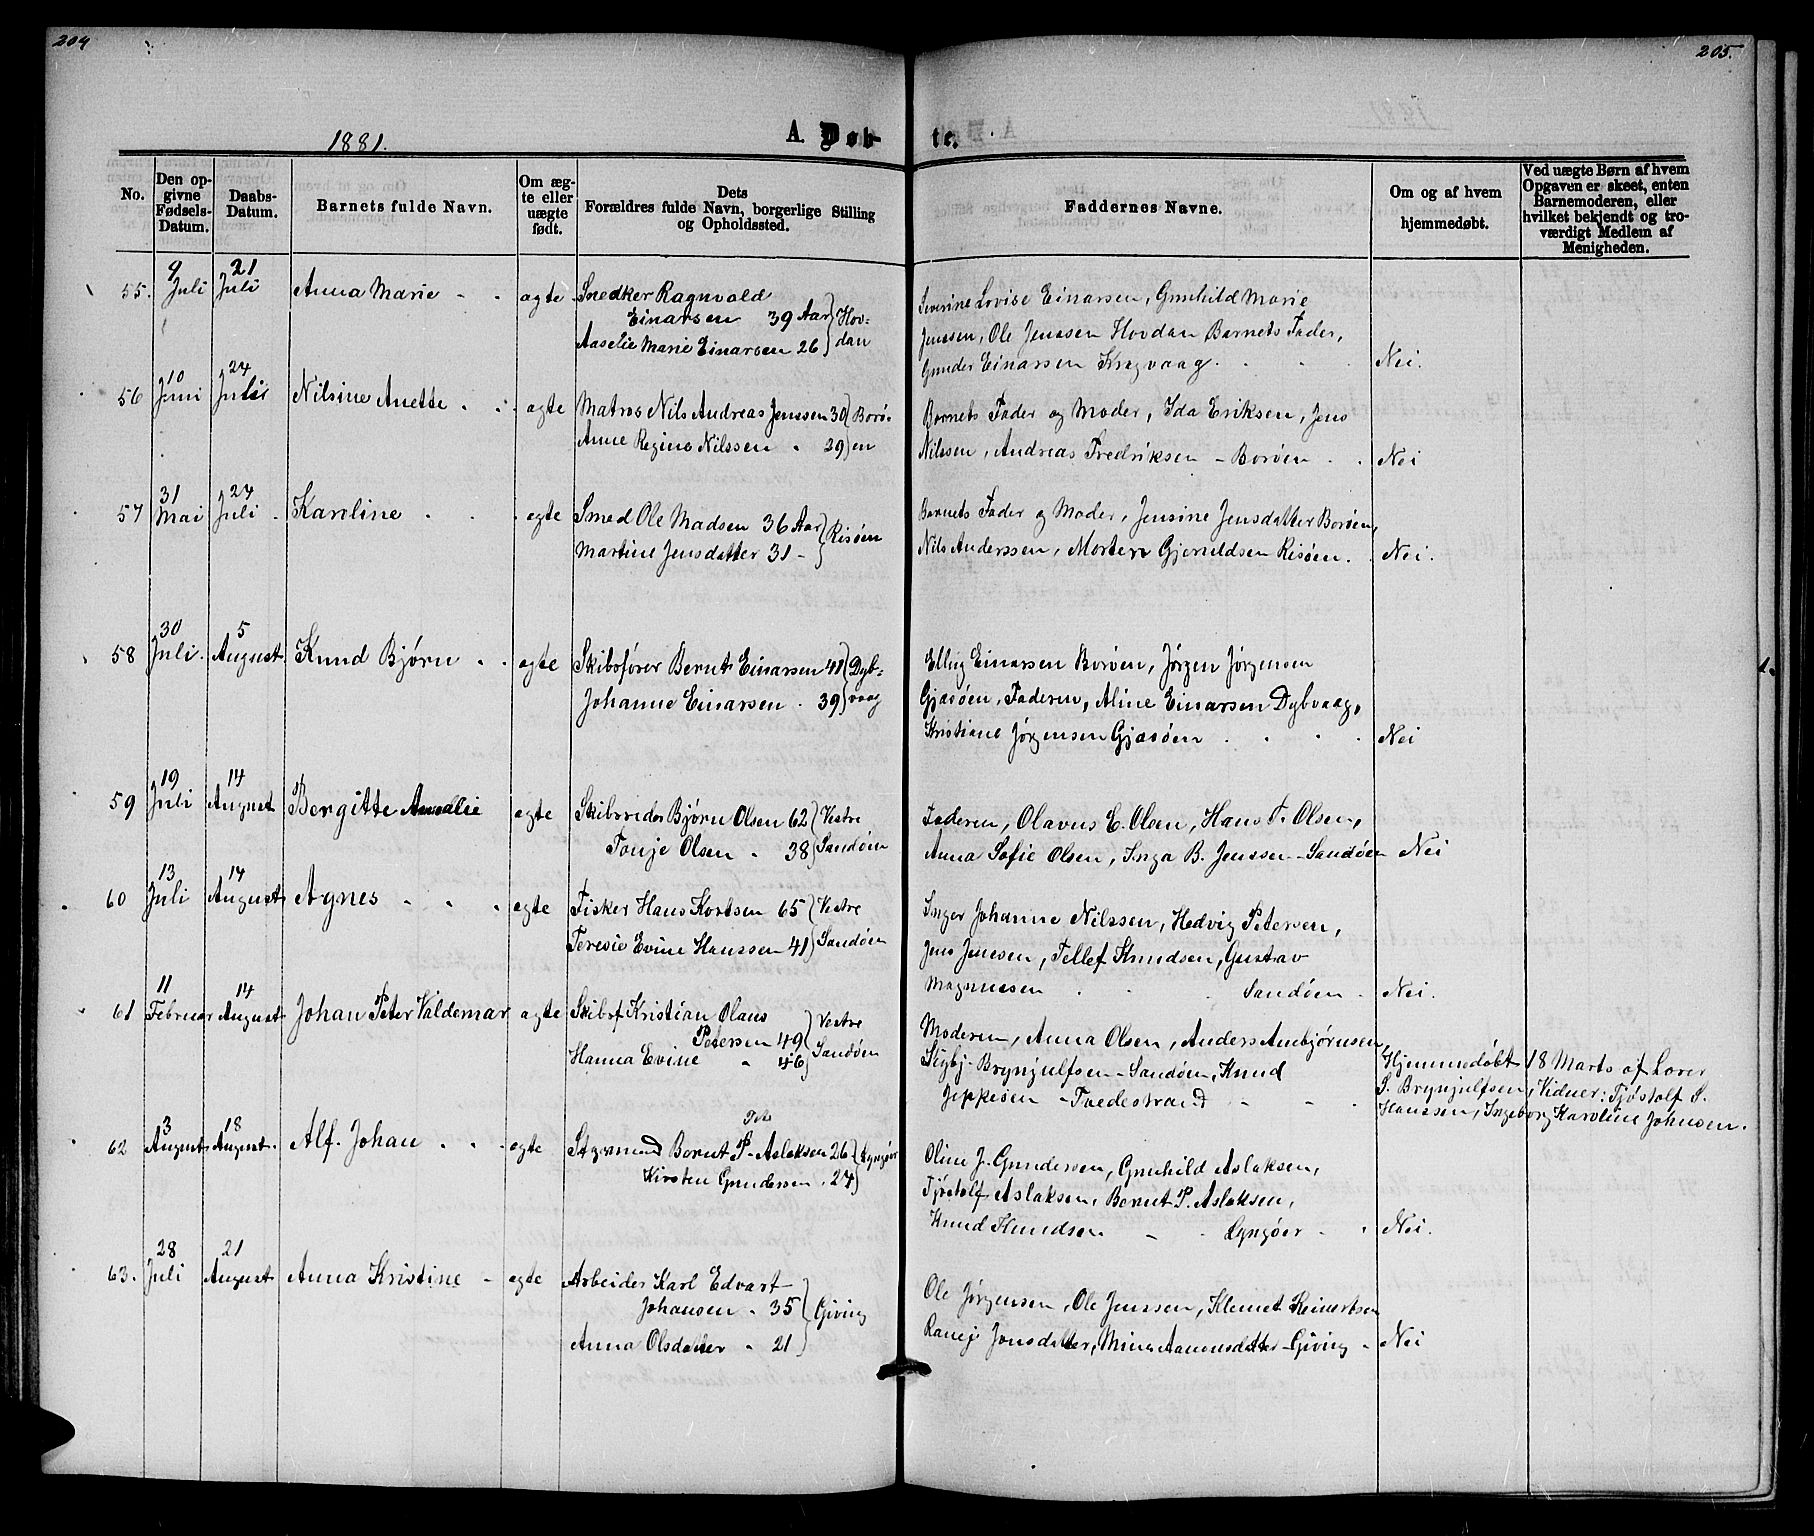 204
205.
1881.
A. Døb-
te.
No.
Den opgivne Fødsels-Datum.
Daabs-Datum.
Barnets fulde Navn.
Om ægte eller uægte født.
Dets Forældres fulde Navn, borgerlige Stilling og Opholdssted.
Faddernes Navne.
Om og af hvem hjemmedøbt.
Ved uægte Børn af hvem Opgaven er skeet, enten Barnemoderen, eller hvilket bekjendt og troværdigt Medlem af Menigheden.
55. 9 Juli 21 Juli Anna Marie - - agte Snedker Ragnvald
Einarsen 39 Aar Hov-
Aaselie Marie Einarsen 26 dan
Severine Lovise Einarsen, Gunhild Marie
Jenssen, Ole Jenssen Hovdan Barnets Fader,
Gunder Einarsen Kragvaag. Nei.
56 10 Juni 24 Juli Nilsine Anette agte Matros Nils Andreas Jenssen 30 Borö-
Anne Regine Nilssen 29 en
Barnets Fader og Moder, Ida Eriksen, Jens
Nilssen, Andreas Fredriksen - Borøen Nei
57 31 Mai 24 Juli Karoline agte Smed Ole Madsen 36 Aar Risøen
Martine Jensdatter 31 -
Barnets Fader og Moder, Jensine Jensdatter Borøen,
Nils Anderssen, Morten Gjeruldsen Risøen. Nei.
58 30 Juli 5 August Knud Bjørn agte Skibsfører Bernt Einarsen 41 Dyb-
Johanne Einarsen 39 vaag
Ellug Einarsen Borøen, Jørgen Jørgensen
Gjasøen, Faderen, Aline Einarsen Dybvaag,
Kristiane Jørgensen Gjasøen Nei
59 19 Juli 14 August Bergitte Amalie agte Skibsreder Bjørn Olsen 62 Vestre
Tonje Olsen 38 Sandøen
Faderen, Olavus E. Olsen, Hans T. Olsen,
Anna Sofie Olsen, Inga B. Jenssen - Sandøen Nei
60 13 Juli 14 August Agnes agte Fisker Hans Kortsen 65 Vestre
Teresie Evine Hanssen 41 Sandøen
Inger Johanne Nilssen, Hedvig Petersen,
Jens Jenssen, Tellef Knudsen, Gustav
Magnussen Sandøen Nei.
61 11 Februar 14 August Johan Peter Valdemar agte Skibsf Kristian Olaus
Petersen 49 Vestre
Hanna Evine 46 Sandøen
Moderen, Anna Olsen, Anders Anbjørnsen,
Brynjulfsen - Sandøen, Knud
Jeppesen - Tvedestrand
Hjemmedøbt 18 Marts af Lærer
S. Brynjulfsen, Vidner: Tjøstolf S.
Hanssen, Ingeborg Karoline Johnsen.
62 3 August 18 August. Alf. Johan agte Styrmand Bernt P. Aslaksen 26 Lyngør
Kirsten Gundersen 24
Oline J. Gundersen, Gunhild Aslaksen,
Tjøstolf Aslaksen, Bernt P. Aslaksen,
Knud Knudsen Lyngøer Nei.
63. 28 Juli 21 August Anna Kristine agte Arbeider Karl Edvart
Johansen 35 Giving
Anna Olsdatter 21
Ole Jørgensen, Ole Jenssen, Klemet Reinertsen
Ranej Jonsdatter, Mina Aanonsdatter - Giving Nei